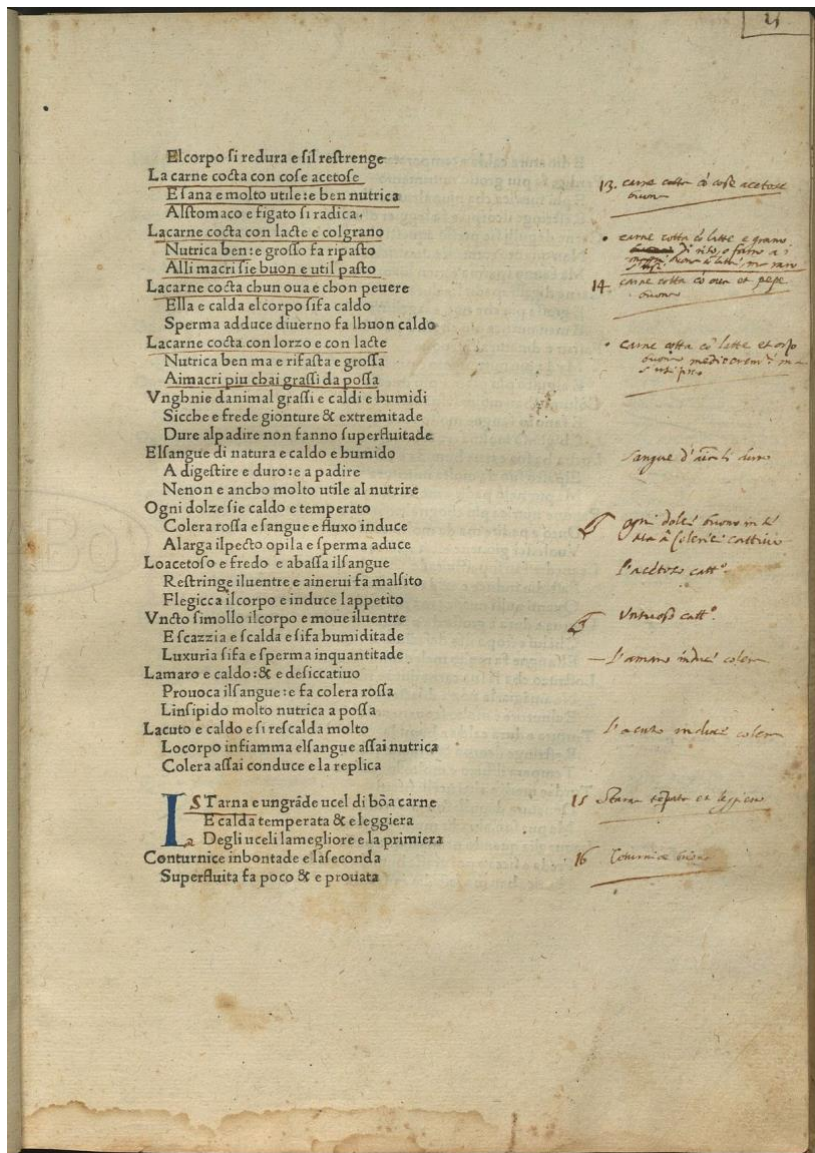 21
Elcorpo si redura e sil restrenge
La carne cocta con cose acetose
E sana e molto utile:e ben nutrica
Alstomaco e figato si radica.
Lacarne cocta con lacte e colgrano
Nutrica ben:e grosso fa ripasto
Alli macri sie buon e util pasto
Lacarne cocta chun oua e chon peuere
Ella e calda elcorpo sifa caldo
Sperma adduce diuerno fa lhuon caldo
Lacarne cocta con lorzo e con lacte
Nutrica ben ma e rifasta e grossa
Aimacri piu chai grassi da possa
Vnghnie danimal grassi e caldi e humidi
Sicche e frede gionture & extremitade
Dure alpadire non fanno superfluitade
Elsangue di natura e caldo e humido
A digestire e duro:e a padire
Nenon e ancho molto utile al nutrire
Ogni dolze sie caldo e temperato
Colera rossa e sangue e fluxo induce
Alarga ilpecto opila e sperma aduce
Loacetoso e fredo e abassa ilsangue
Restringe iluentre e ainerui fa malsito
Flegicca ilcorpo e induce lappetito
Vncto simollo ilcorpo e moue iluentre
E scazzia e scalda e sifa humiditade
Luxuria sifa e sperma inquantitade
Lamaro e caldo:& e desiccatiuo
Prouoca ilsangue:e fa colera rossa
Linsipido molto nutrica a possa
Lacuto e caldo e si rescalda molto
Locorpo infiamma elsangue assai nutrica
Colera assai conduce e la replica
La STarna e ungrāde ucel di bōa carne
E calda temperata & e leggiera
Degli uceli lamegliore e la primiera
Conturnice inbontade e laseconda
Superfluita fa poco & e prouata
13. carne cotta cō cose acetose
buona
carne cotta cō latte e grano
14 carne cotta cō oua et pepe
buona
carne cotta cō latte et orzo
sangue
l'acetoso catt.º
Vntuoso catt.º
l'amaro induce colera
l'acuto induce colera
15 Starna
16 Coturnice buona